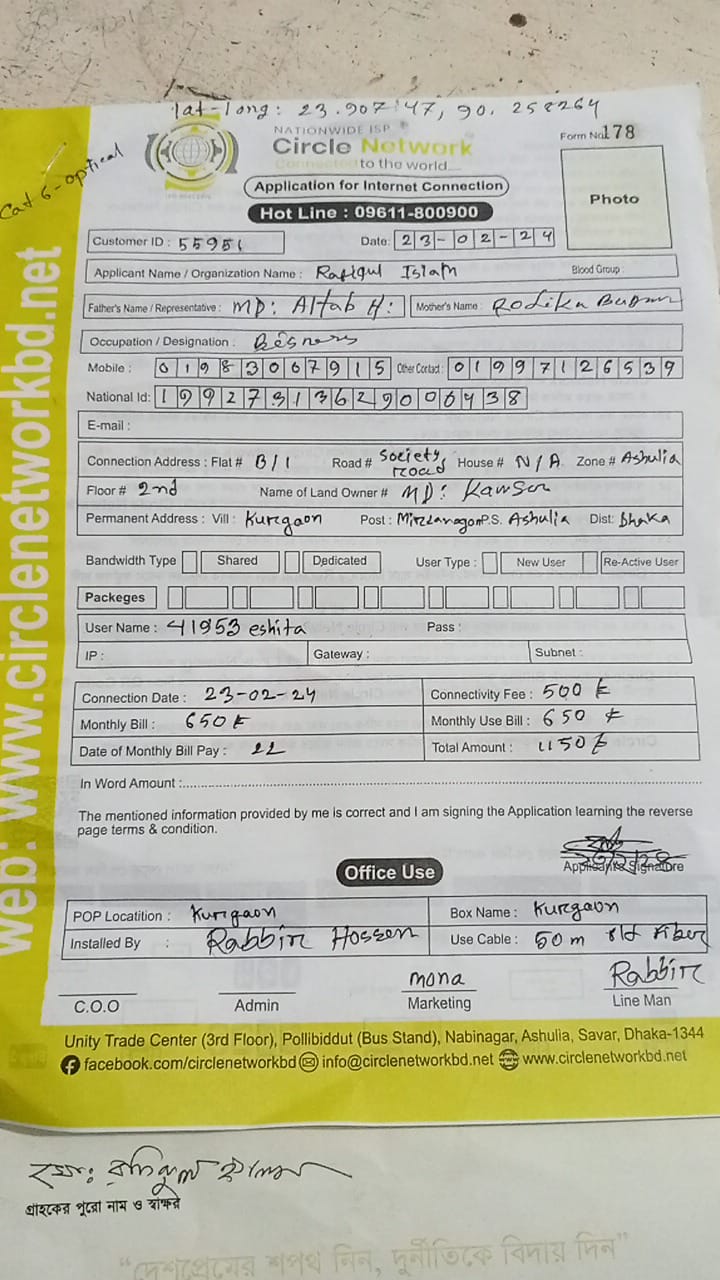 lat-long: 23.907147, 90.258264
Cat 6-optical
NATIONWIDE ISP
Circle Network
Connected to the world
Form No: 178
Photo
Application for Internet Connection
Hot Line : 09611-800900
Customer ID : 55951 Date: 23-02-24
Applicant Name / Organization Name : Rafiqul Islam Blood Group :
Father's Name / Representative : MD: Altab H: Mother's Name :
Occupation / Designation : Bisness
Mobile : 01983067915 Other Contact : 01997126539
National Id: 19927313629000438
E-mail :
Connection Address : Flat # B/1 Road # Society road House # N/A Zone # Ashulia
Floor # 2nd Name of Land Owner # MD: Kawser
Permanent Address : Vill : Kurgaon Post : P.S. Ashulia Dist: Dhaka
Bandwidth Type Shared Dedicated User Type : New User Re-Active User
Packeges
User Name : 41953 eshita Pass :
IP : Gateway : Subnet :
Connection Date : 23-02-24 Connectivity Fee : 500 ৳
Monthly Bill : 650 ৳ Monthly Use Bill : 650 ৳
Date of Monthly Bill Pay : 22 Total Amount : 1150 ৳
In Word Amount :
The mentioned information provided by me is correct and I am signing the Application learning the reverse
page terms & condition.
Applicant's Signature
Office Use
POP Locatition : Kurgaon Box Name : Kurgaon
Installed By : Rabbir Hossen Use Cable : 50 m
C.O.O Admin mona Marketing Rabbir Line Man
Unity Trade Center (3rd Floor), Pollibiddut (Bus Stand), Nabinagar, Ashulia, Savar, Dhaka-1344
facebook.com/circlenetworkbd info@circlenetworkbd.net www.circlenetworkbd.net
web: www.circlenetworkbd.net
গ্রাহকের পুরো নাম ও স্বাক্ষর
“দেশপ্রেমের শপথ নিন, দুর্নীতিকে বিদায় দিন”